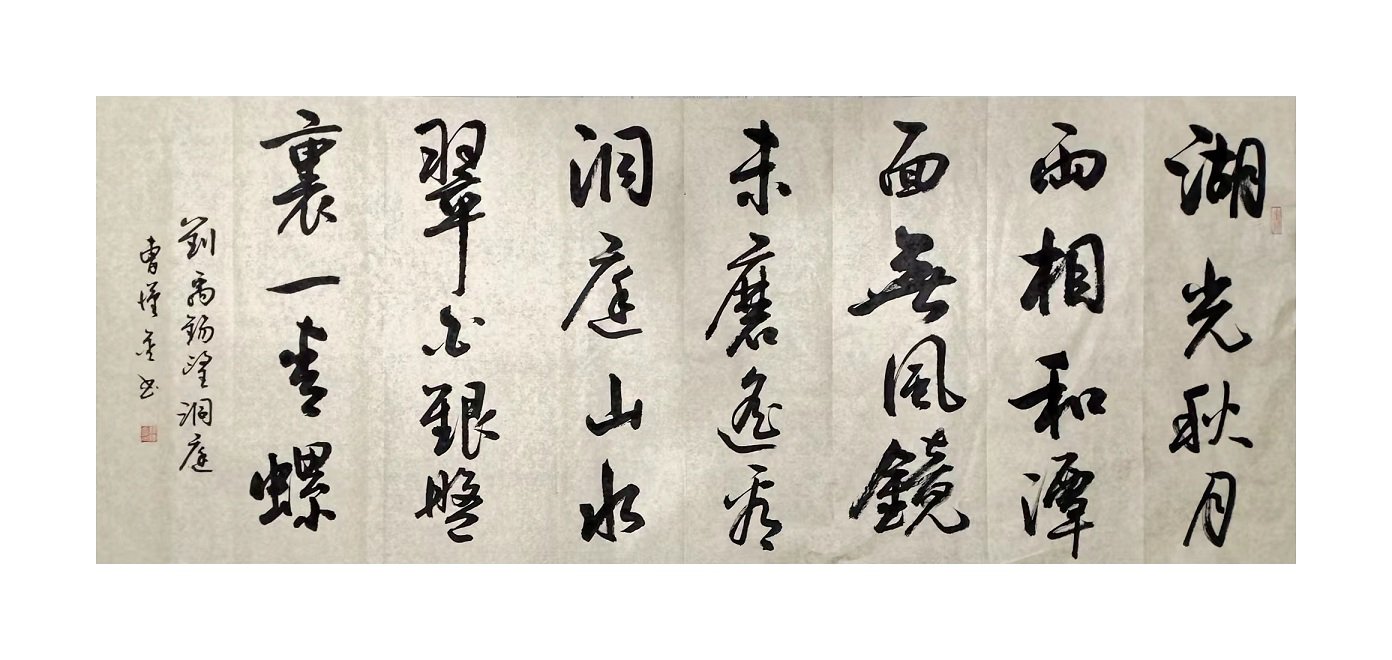 湖光秋月
兩相和潭
面無風鏡
未磨遙看
洞庭山水
翠白銀盤
裏一青螺
劉禹錫望洞庭
曹书